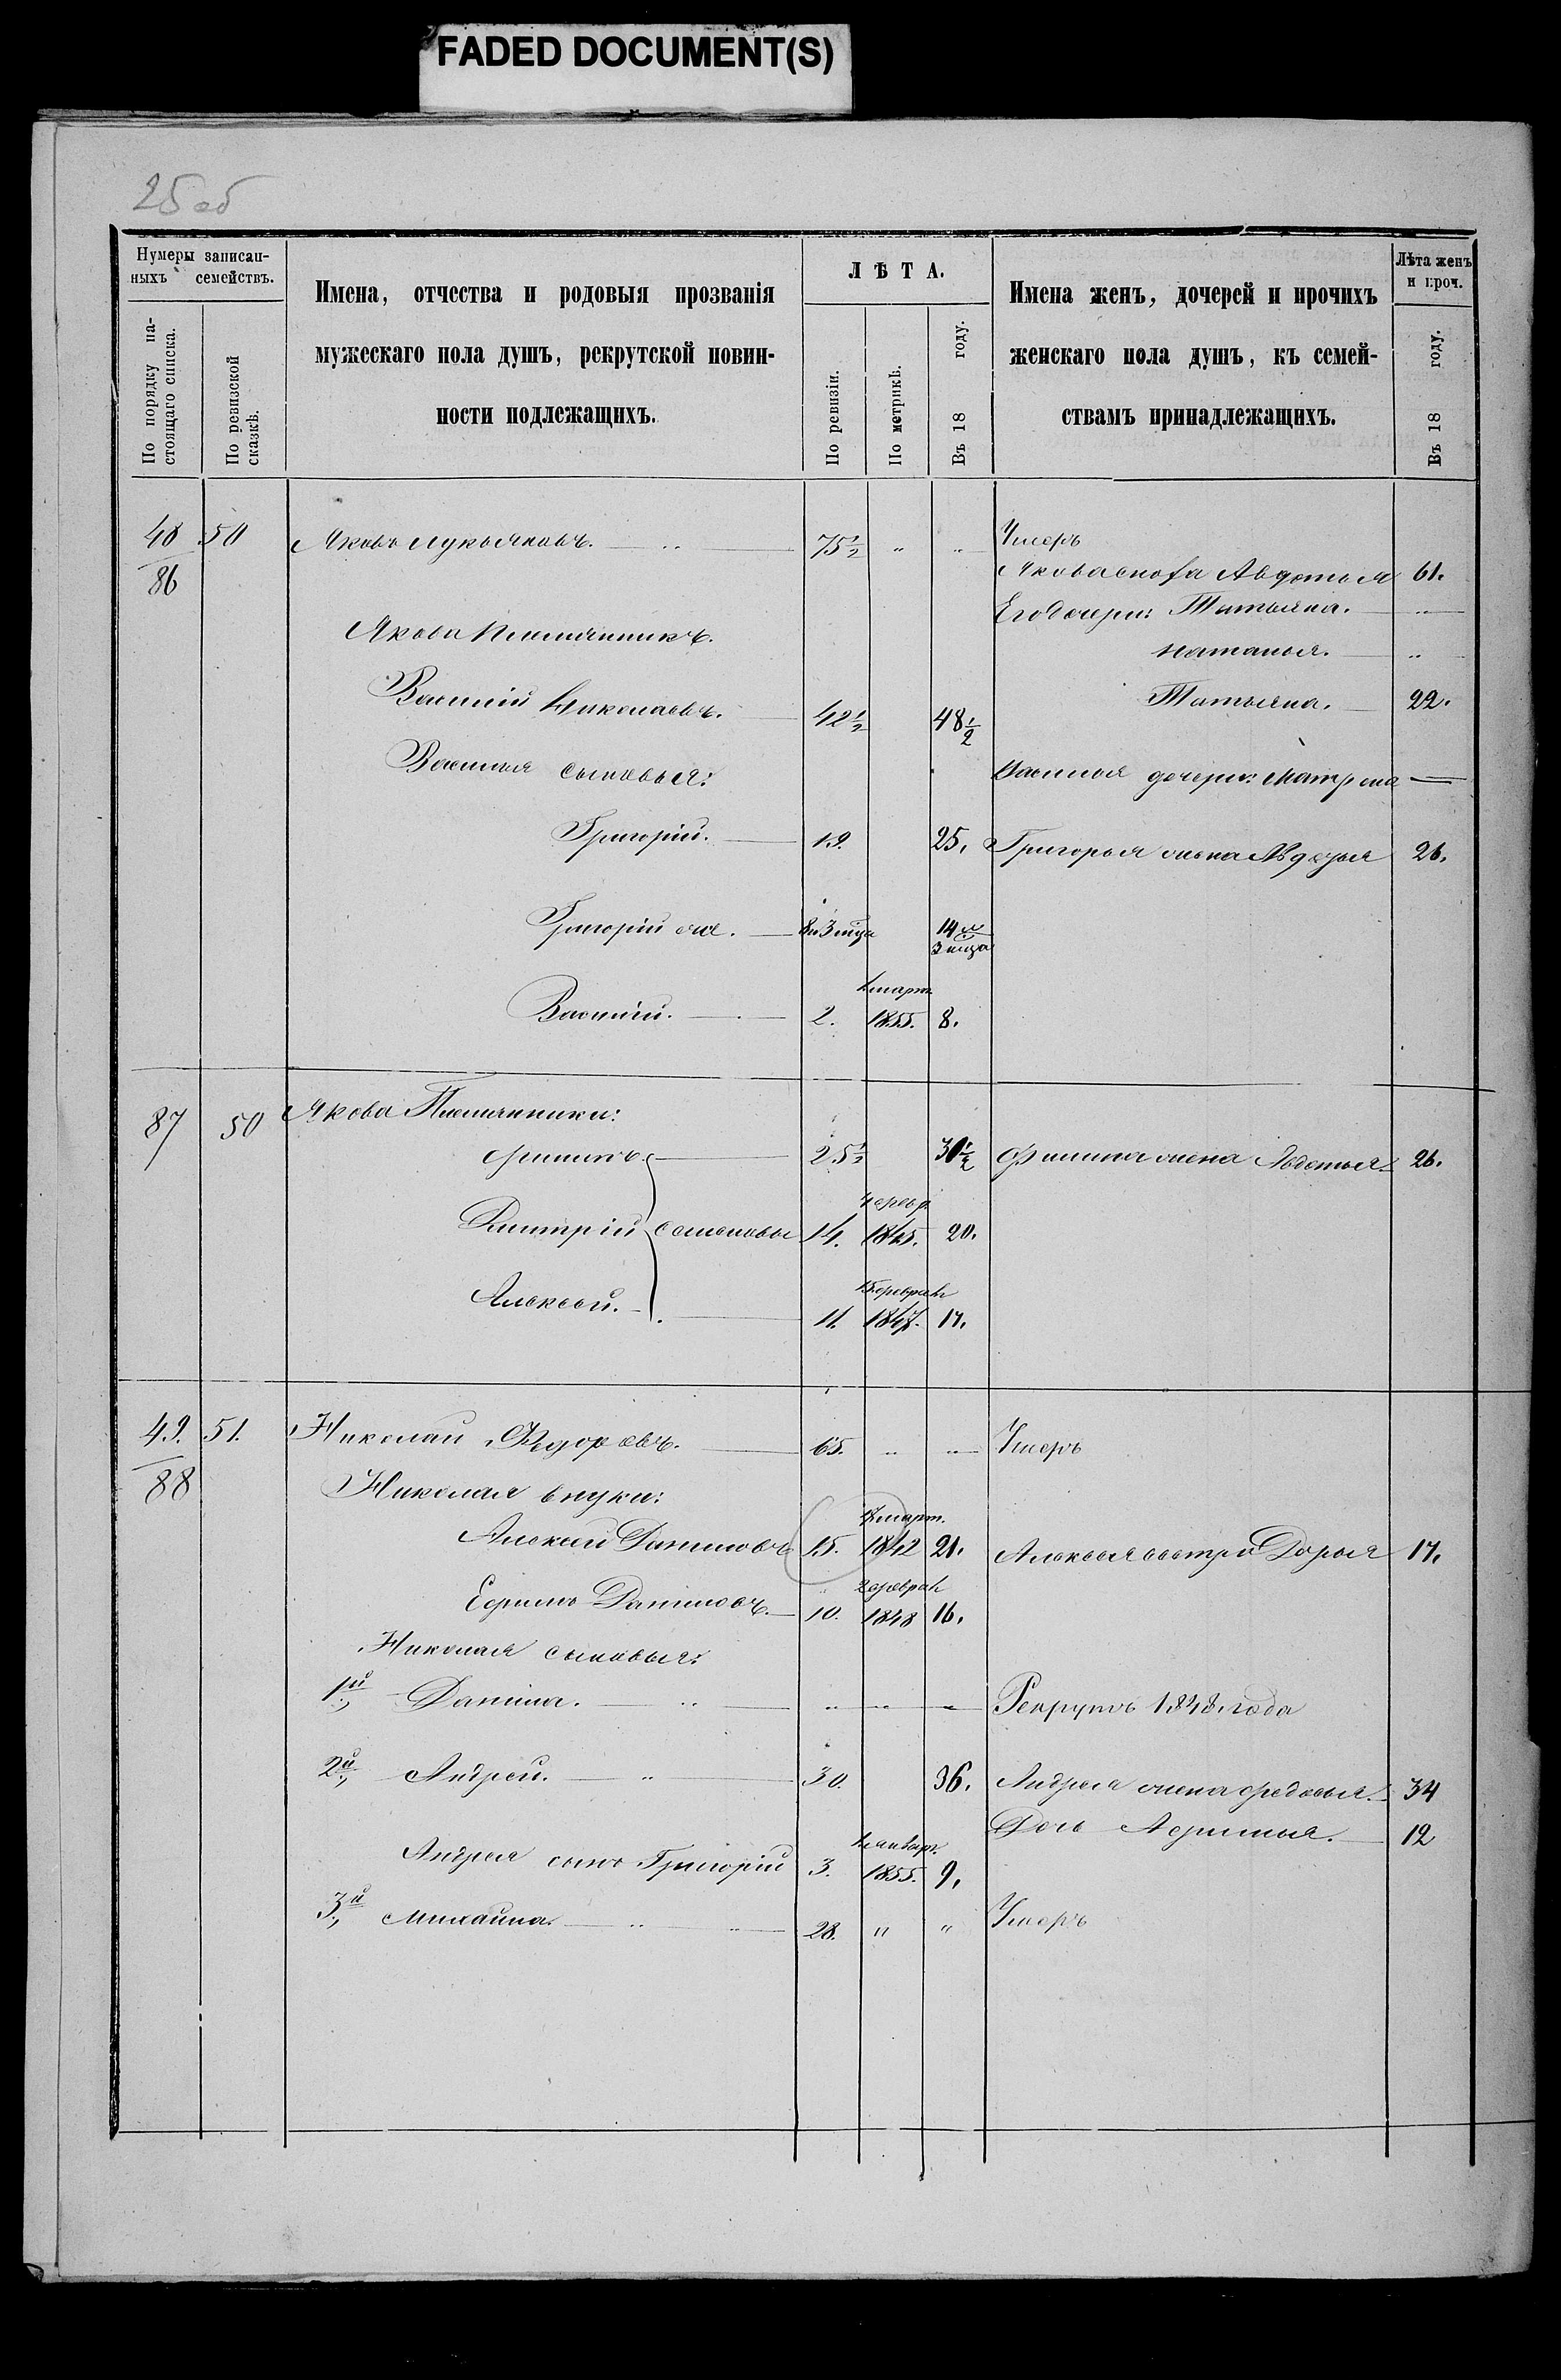 FADED DOCUMENT(S)
25 об
Нумеры записан-
ныхъ семействъ.
По порядку на-
стоящаго списка.
По ревизской
сказкѣ.
Имена, отчества и родовыя прозванія
мужескаго пола душъ, рекрутской повин-
ности подлежащихъ.
ЛѢТА.
По ревизіи.
По метрикѣ.
Въ 18 году.
Имена женъ, дочерей и прочихъ
женскаго пола душъ, къ семей-
ствамъ принадлежащихъ.
Лѣта женъ
и проч.
Въ 18 году.
48 50 Яковъ Лукьяновъ. 75½ " " Умеръ
86 Якова сноха Авдотья 61.
Его дочери: Татьяна. "
Якова Племянникъ.
Наталья. "
Татьяна. 22.
Василій Николаевъ. 42½ 48½
Василья сыновья: Василья дочери: Матрена —
Григорій. 19. 25. Григорья жена Авдотья 26.
Григорій же. 8 и 3 мца 14 и
3 мца
1 март.
Василій. 2. 1855. 8.
87 50 Якова Племянники:
Филипъ. 25½ 30½ Филипа жена Авдотья 26.
Дмитрій Семеновы 14. 1845. 20.
15 феврал.
Алексѣй. 11. 1847. 17.
49. 51. Николай Федоровъ. 65. " " Умеръ
88 Николая внуки:
март.
Алексѣй Даниловъ 15. 1842 21. Алексѣя сестра Дарья 17.
2 феврал
Ефимъ Даниловъ. 10. 1848 16.
Николая сыновья:
1й Данила. " " " Рекрутъ 1848 года
2й Андрей. 30. 36. Андрея жена Федосья. 34
Дочь Афимья. 12
январ.
Андрея сынъ Григорій 3. 1855. 9.
3й Михайла. 28. " " Умеръ